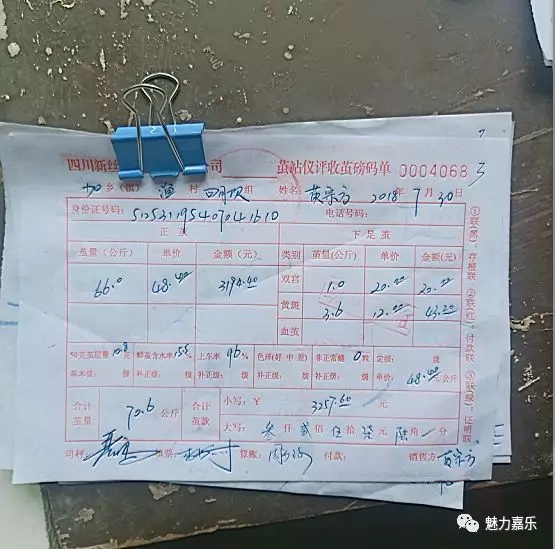 四川新丝 公司 茧站仪评收茧磅码单 0004068
加乡(镇) 渔村 四月坝组 姓名: 黄宗方 2018年7月30日
身份证号码: 电话号码:
正茧 下足茧
茧量(公斤) 单价 金额(元) 类别 茧量(公斤) 单价 金额(元)
66.0 48.40 3194.40 双宫 1.0 20.00 20.00
黄斑 3.6 12.00 43.20
血茧
50克茧层量 10.8克 鲜茧含水率 15% 上车率 96% 色泽(好 中 差) 非正常蛹 0粒 定级: 级
基本级: 级 补正级: 级 补正级: 级 补正级: 级 补正级: 级 单价: 48.40元/公斤
合计茧量 70.6 公斤 合计茧款 小写: ¥ 3257.60 元
大写: 叁仟贰佰伍拾柒元陆角 分
司秤: 填票: 算账: 付款: 销售方: 黄宗方
①联(黑): 存根联 ②联(红): 付款联 ③联(绿): 证明联
魅力嘉乐